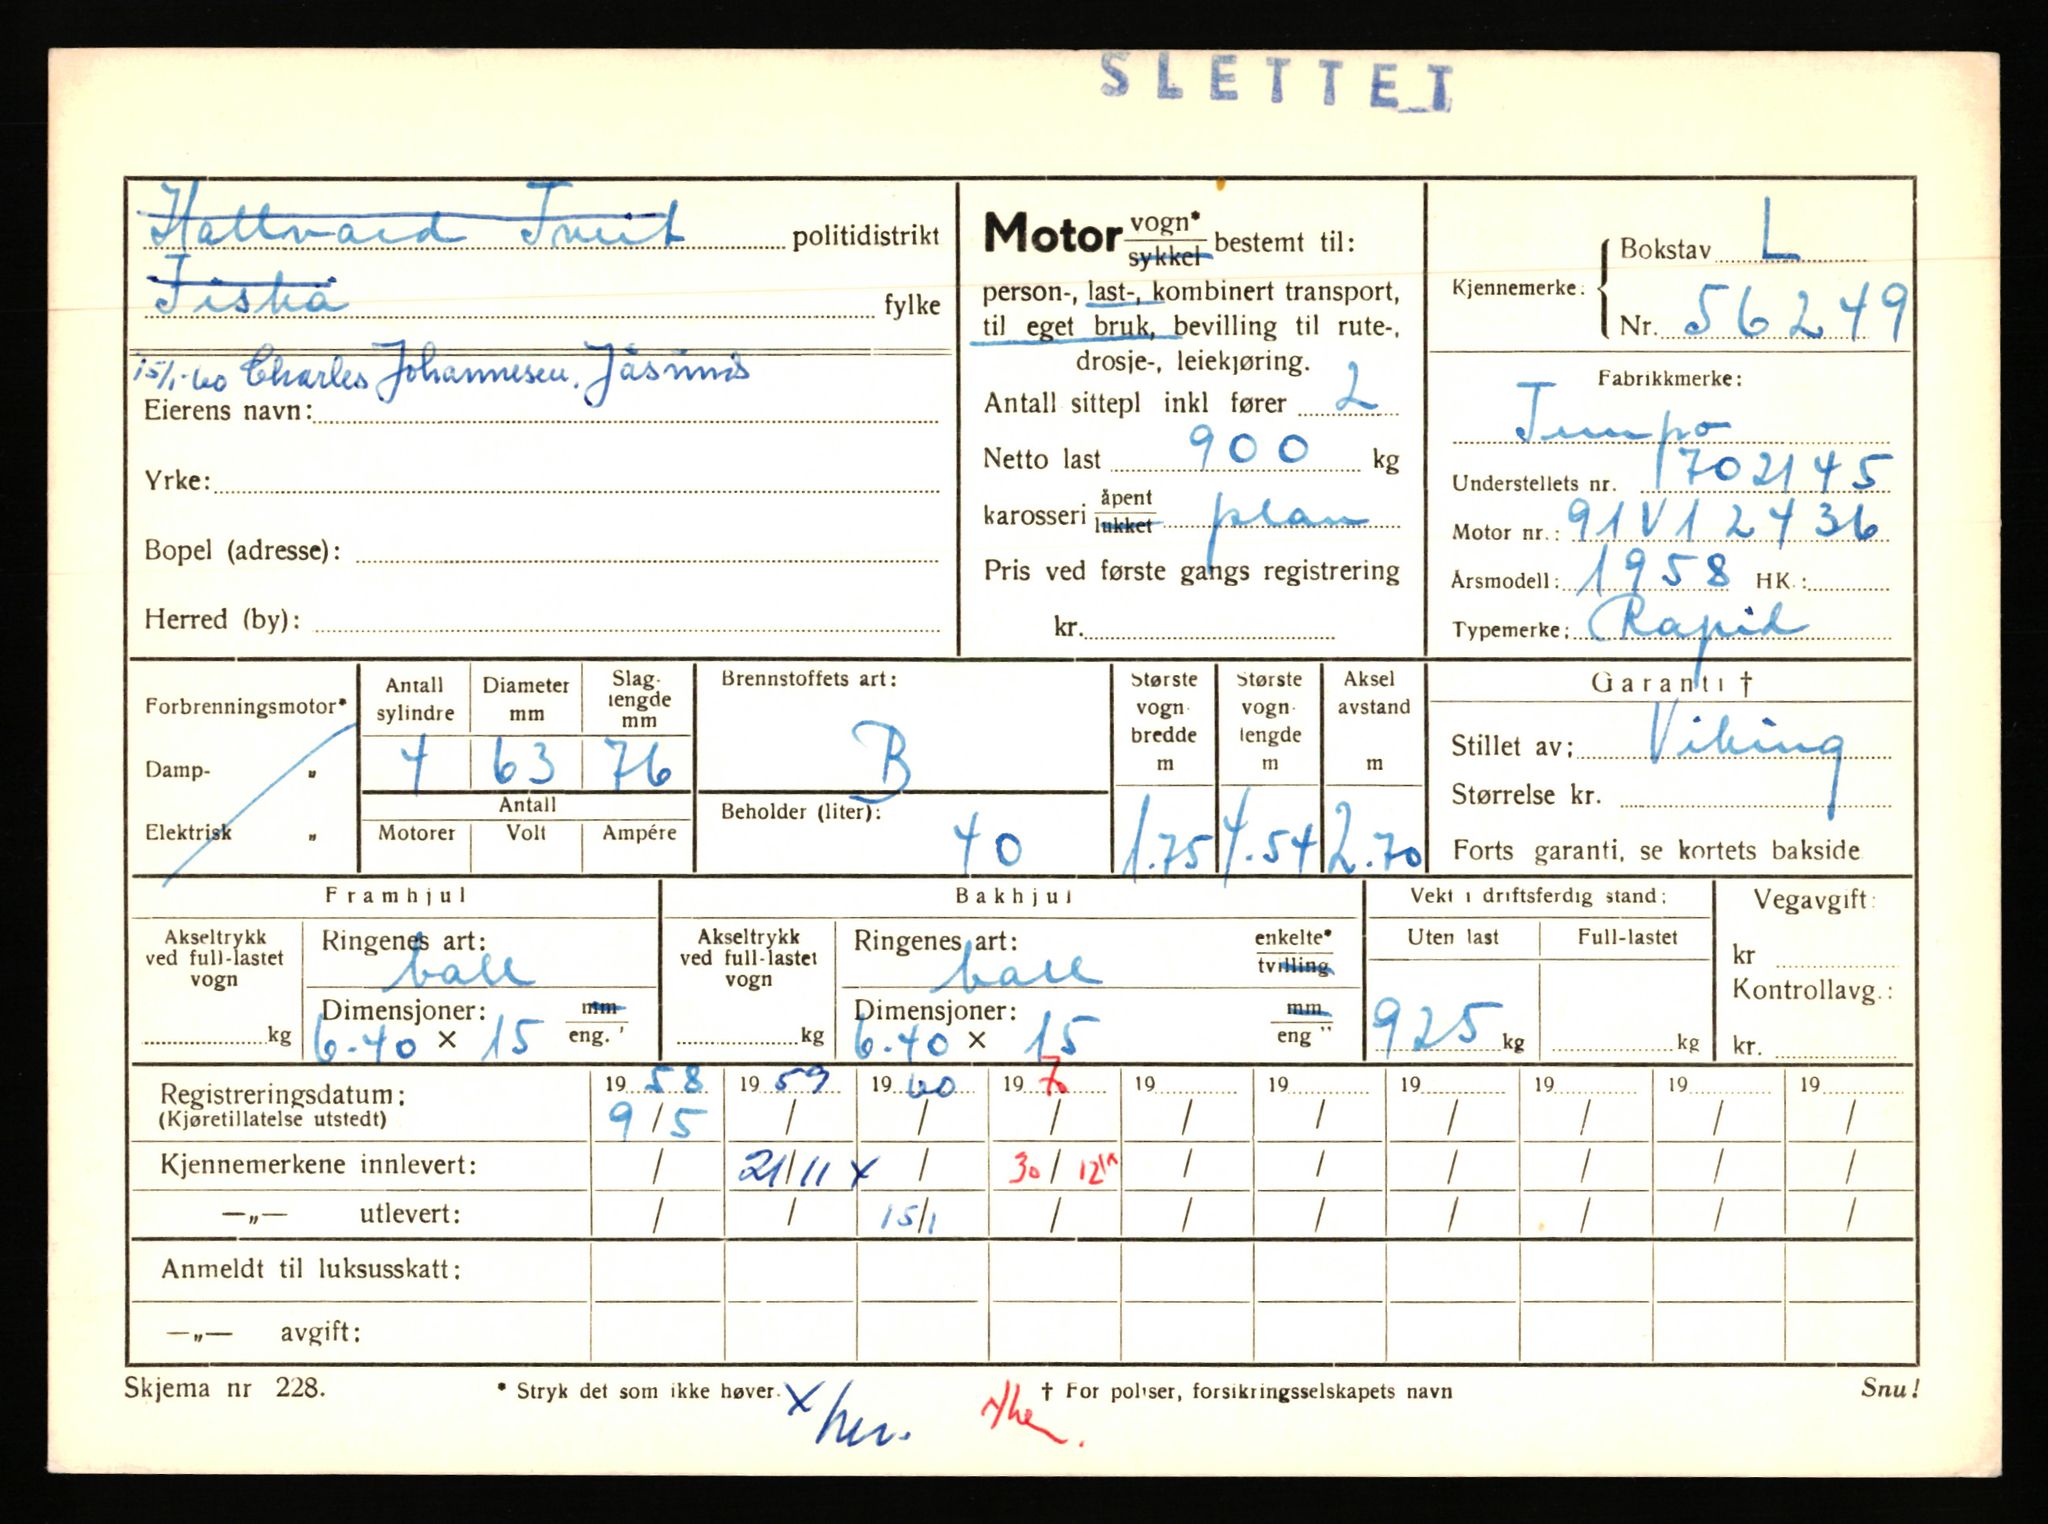 SLETTET
Hallvard Tveit politidistrikt
Fiskå fylke
15/1-60 Charles Johannesen.
Eierens navn:
Yrke:
Bopel (adresse):
Herred (by):
Motor vogn* sykkel bestemt til:
person-, last-, kombinert transport,
til eget bruk, bevilling til rute-,
drosje-, leiekjøring.
Antall sittepl inkl fører 2
Netto last 900 kg
karosseri åpent lukket plan
Pris ved første gangs registrering
kr.
Kjennemerke: Bokstav L
Nr. 56249
Fabrikkmerke:
Tempo
Understellets nr. 1702145
Motor nr.: 91V12436
Årsmodell: 1958 HK.:
Typemerke: Rapid
Forbrenningsmotor*
Damp- "
Elektrisk "
Antall sylindre 4
Diameter mm 63
Slaglengde mm 76
Antall
Motorer Volt Ampére
Brennstoffets art:
B
Beholder (liter):
40
Største vognbredde m 1.75
Største vognlengde m 4.54
Aksel avstand m 2.70
Garanti †
Stillet av: Viking
Størrelse kr.
Forts garanti, se kortets bakside
Framhjul
Akseltrykk ved full-lastet vogn kg
Ringenes art: ball
Dimensjoner: mm eng."
6.40 × 15
Bakhjul
Akseltrykk ved full-lastet vogn kg
Ringenes art: ball enkelte* tvilling
Dimensjoner: mm eng "
6.40 × 15
Vekt i driftsferdig stand:
Uten last Full-lastet
925 kg kg
Vegavgift:
kr
Kontrollavg.:
kr.
Registreringsdatum: 19 58 19 59 19 60 19 70 19 19 19 19 19 19
(Kjøretillatelse utstedt) 9/5 / / / / / / / / /
Kjennemerkene innlevert: / 21/11 x / 30/12 / / / / / /
—„— utlevert: / / 15/1 / / / / / / /
Anmeldt til luksusskatt:
—„— avgift:
Skjema nr 228. * Stryk det som ikke høver. † For poliser, forsikringsselskapets navn Snu!